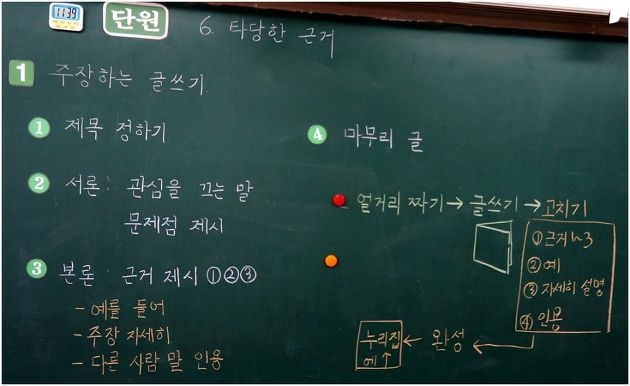 11:39
단원 6. 타당한 근거
1 주장하는 글쓰기
① 제목 정하기
② 서론: 관심을 끄는 말
문제점 제시
③ 본론: 근거 제시 ①②③
- 예를 들어
- 주장 자세히
- 다른 사람 말 인용
④ 마무리 글
얼거리 짜기 → 글쓰기 → 고치기
① 근거 2~3
② 예
③ 자세히 설명
④ 인용
누리집 ← 완성 ←
에 ↑